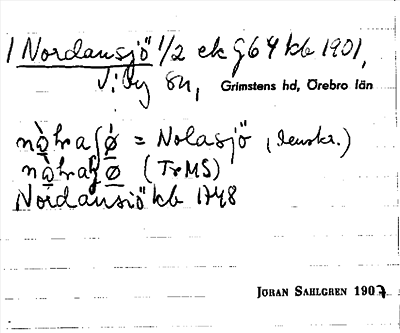 1 Nordansjö 1/2 ek G64 kb 1901,
Viby sn, Grimstens hd, Örebro län
nò̱hraʃǿ̱ = Nolasjö (lenskr.)
nò̱hraʃø̱ (TrMS)
Nordansiö kb 1748
JÖRAN SAHLGREN 1907